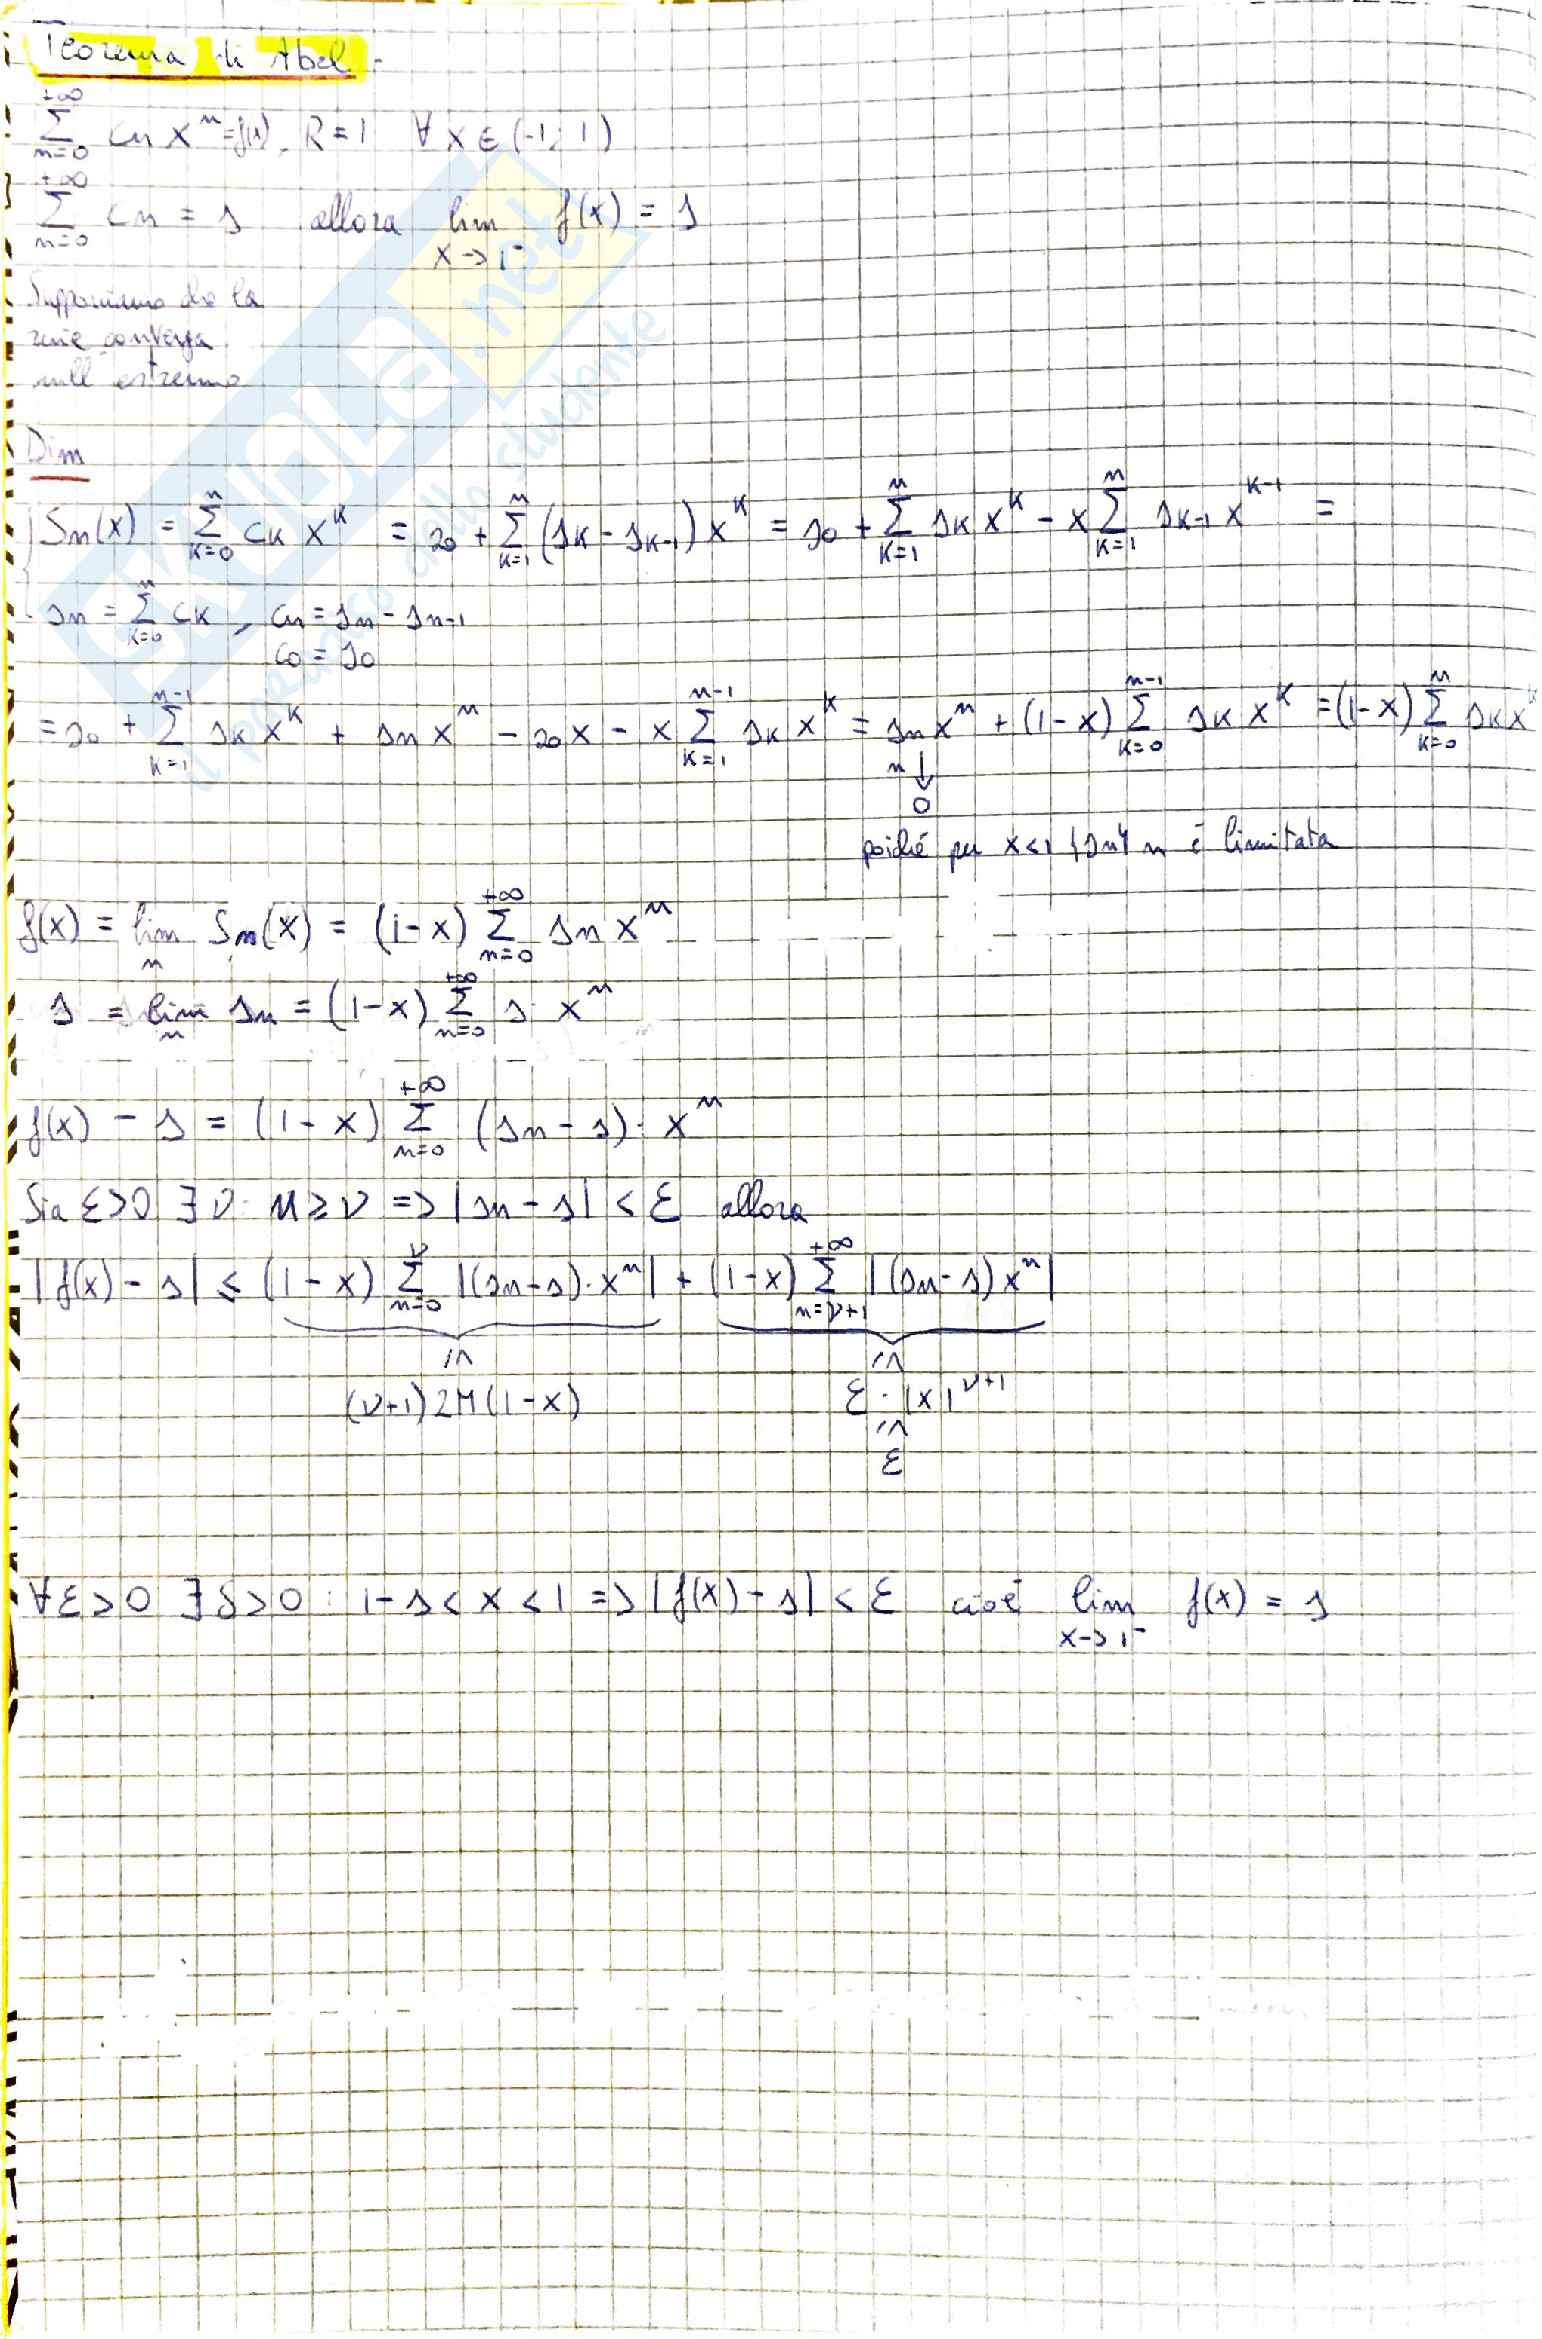 Teorema di Abel -
+∞ Σ n=0 cn x^n = f(x), R=1 ∀ x ∈ (-1; 1)
+∞ Σ n=0 cn = s allora lim x→1⁻ f(x) = s
Supponiamo che la
serie converga
sull'estremo
Dim
Sn(x) = n Σ k=0 ck x^k = s0 + n Σ k=1 (sk - sk-1) x^k = s0 + n Σ k=1 sk x^k - x n Σ k=1 sk-1 x^k-1 =
sn = n Σ k=0 ck, cn = sn - sn-1
c0 = s0
= s0 + n-1 Σ k=1 sk x^k + sn x^n - s0 x - x n-1 Σ k=1 sk x^k = sn x^n + (1-x) n-1 Σ k=0 sk x^k = (1-x) n Σ k=0 sk x^k
n ↓
0
poiché per x<1 {sn}n è limitata
f(x) = lim n Sn(x) = (1-x) +∞ Σ n=0 sn x^n
s = lim n sn = (1-x) +∞ Σ n=0 s · x^n
f(x) - s = (1-x) +∞ Σ n=0 (sn - s) · x^n
Sia ε>0 ∃ ν: n ≥ ν => |sn - s| < ε allora
|f(x) - s| ≤ (1-x) ν Σ n=0 |(sn-s)·x^n| + (1-x) +∞ Σ n=ν+1 |(sn-s) x^n|
≤ ≤
(ν+1) 2M (1-x) ε · |x|^ν+1
≤
ε
∀ε>0 ∃ δ>0 : 1-s < x < 1 => |f(x) - s| < ε cioè lim x→1⁻ f(x) = s
SKUOLA.net
il paradiso dello studente